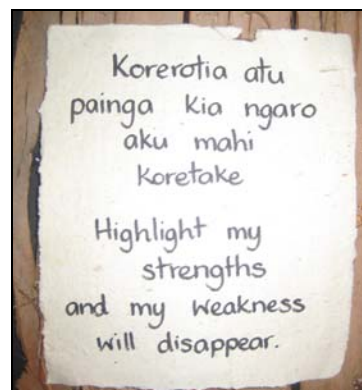 Korerotia atu
painga kia ngaro
aku mahi
koretake
Highlight my
strengths
and my weakness
will disappear.